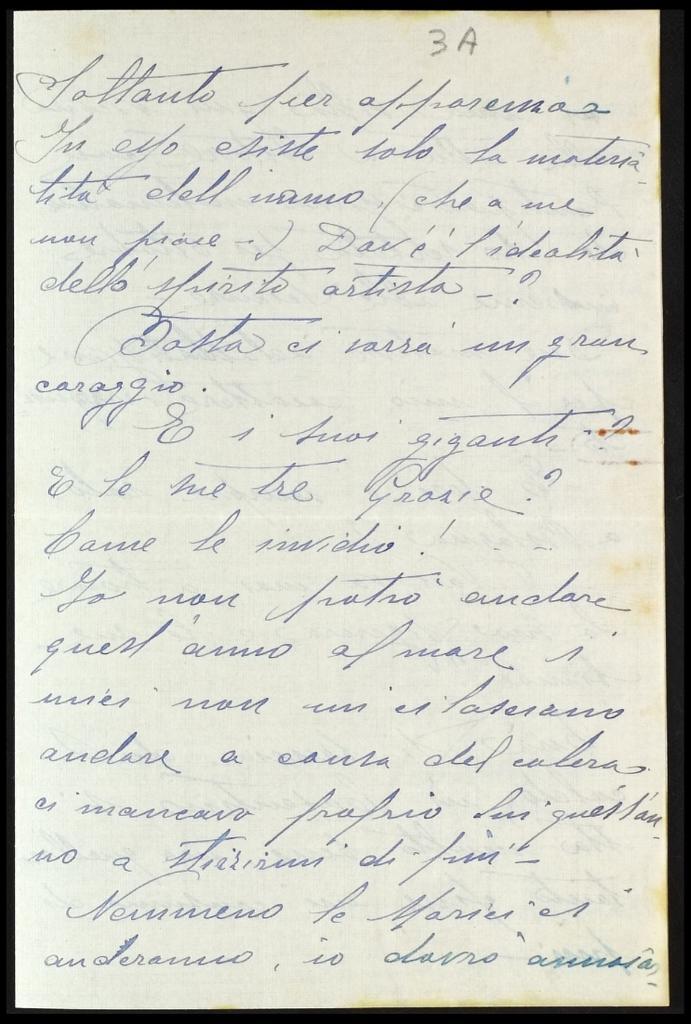 3A
Soltanto per apparenza
In esso esiste solo la materia-
lità dell'uomo, (che a me
non piace -) Dov'è l'idealità
dello spirito artista - ?
Basta ci vorrà un gran
coraggio.
E i suoi giganti - ?
E le sue tre Grazie ?
Come le invidio ! - -
Io non potrò andare
quest'anno al mare i
miei non mi ci lasciano
andare a causa del colera
ci mancava proprio lui quest'an-
no a stizzirmi di più -
Nemmeno le ci
anderanno, io dovrò annoia-